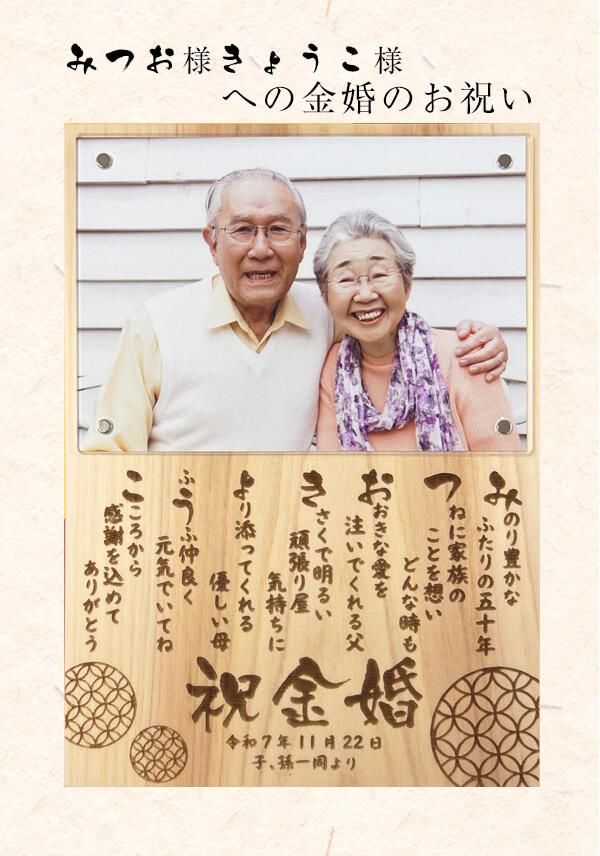 みつお様きょうこ様
への金婚のお祝い
みのり豊かな
ふたりの五十年
つねに家族の
ことを想い
どんな時も
おおきな愛を
注いでくれる父
きさくで明るい
頑張り屋
気持ちに
より添ってくれる
優しい母
ふうふ仲良く
元気でいてね
こころから
感謝を込めて
ありがとう
祝金婚
令和7年11月22日
子、孫一同より